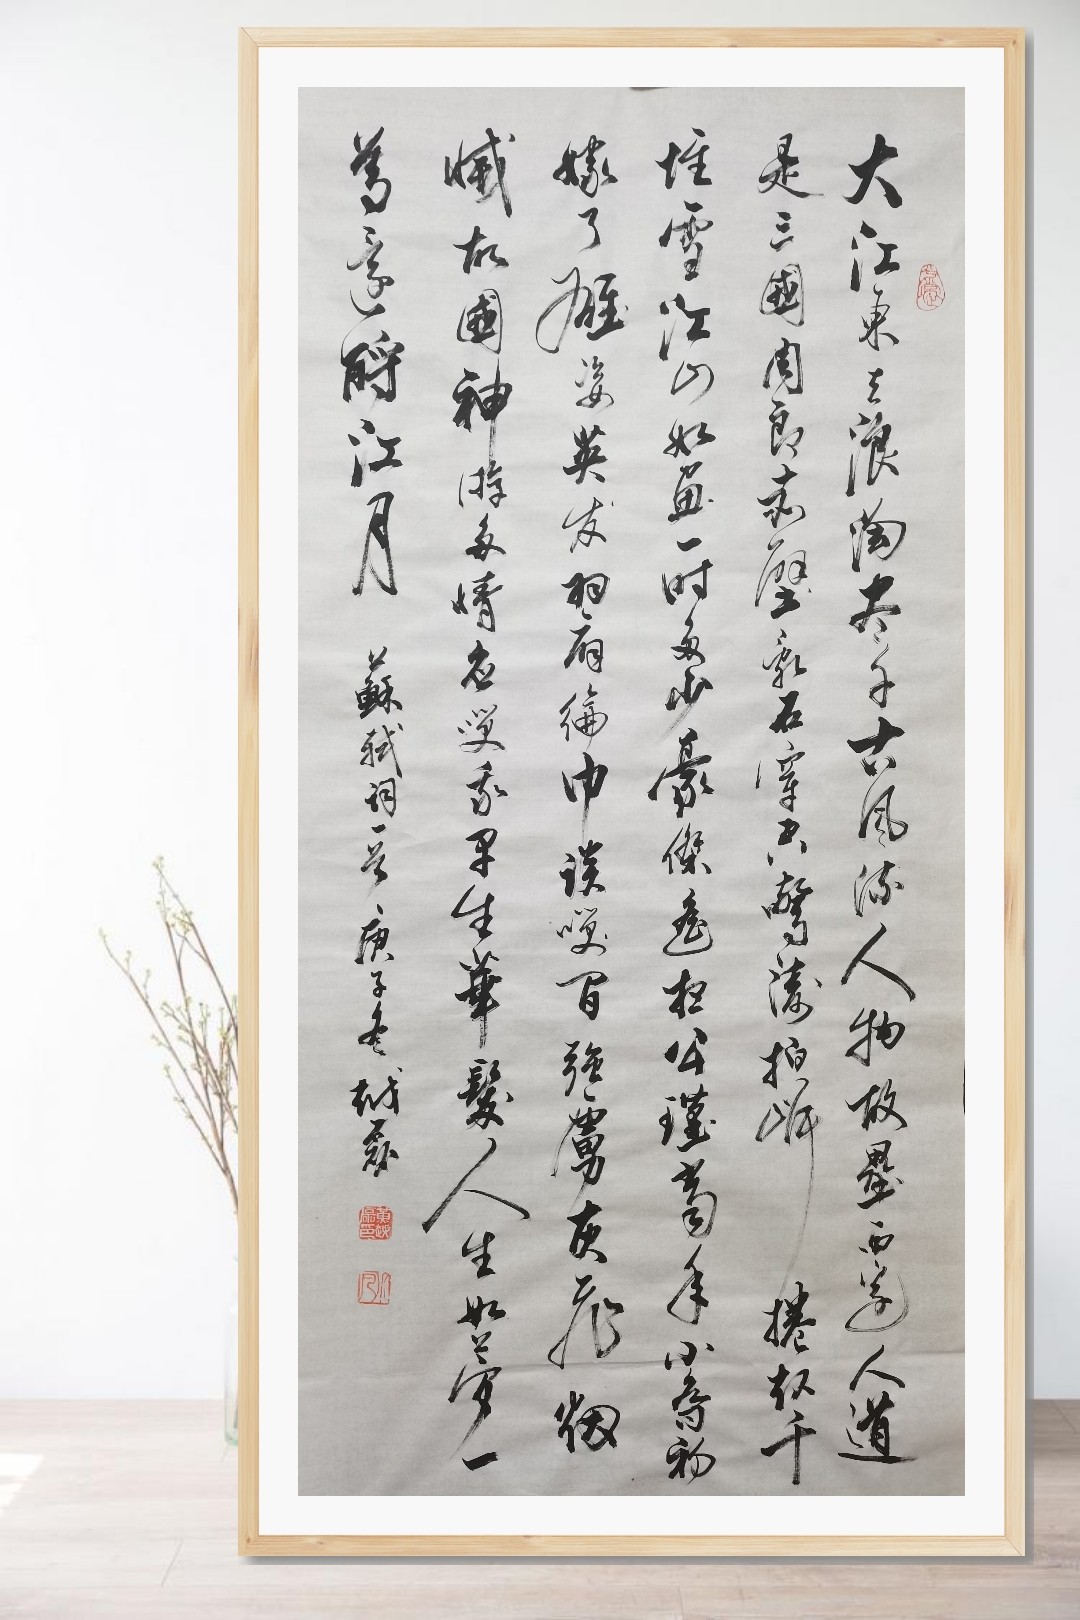 大江東去浪淘盡千古風流人物故壘西邊人道
是三國周郎赤壁亂石穿空驚濤拍岸捲起千
堆雪江山如畫一時多少豪傑遙想公瑾當年小喬初
嫁了雄姿英发羽扇綸巾談笑間強虜灰飛烟
滅故國神游多情應笑我早生華髮人生如夢一
尊還酹江月
蘇軾詞一首庚子冬